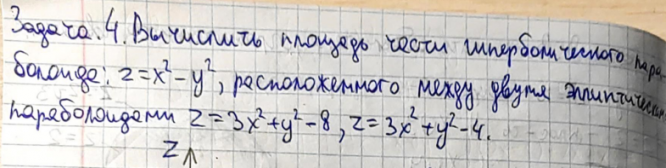 Задача. 4. Вычислить площадь части гиперболического пара
болоида: z=x²-y², расположенного между двумя эллиптическими
параболоидами z=3x²+y²-8, z=3x²+y²-4.
z